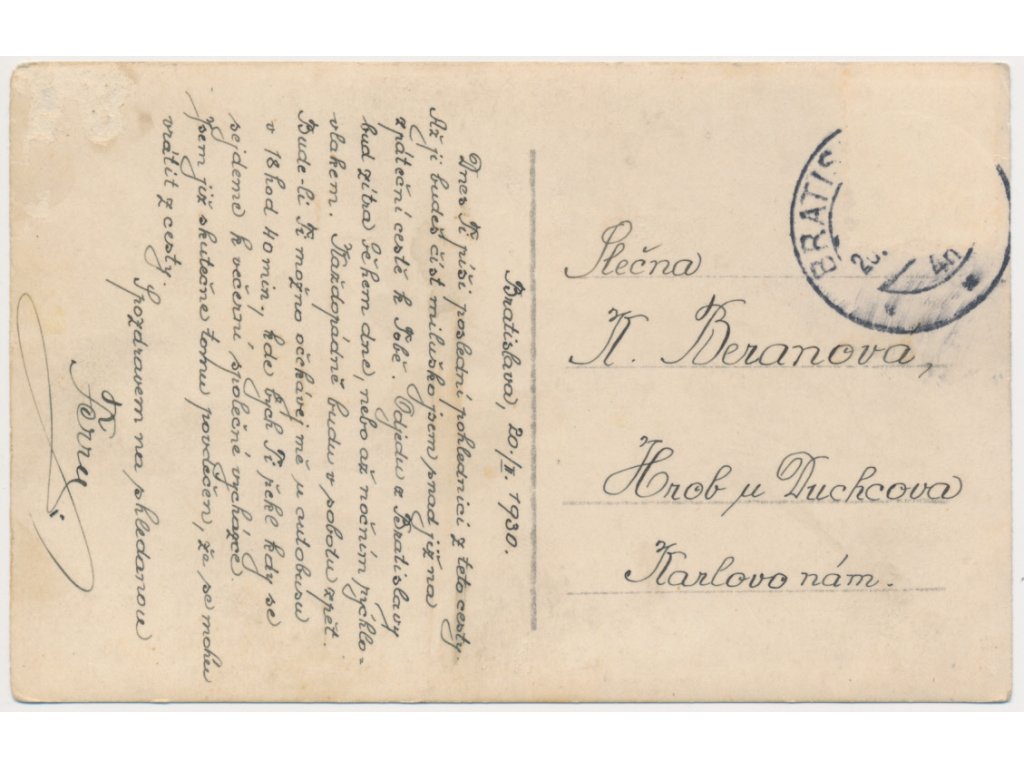 Bratislava, 20./II. 1930.
Dnes Ti píši poslední pohlednici z této cesty.
Až ji budeš číst miluško jsem snad již na
zpáteční cestě k Tobě. Odjedu z Bratislavy
bud zítra během dne, nebo až nočním rychlo-
vlakem. Každopádně budu v sobotu zpět.
Bude-li Ti možno očekávej mě u autobusu
v 18 hod 40 min, kde bych Ti řekl kdy se
sejdeme k večerní společné vycházce.
Jsem již skutečne tomu povděčen, že se mohu
vrátit z cesty.
S pozdravem na shledanou
BRATIS
20. 40
Slečna
K. Beranova,
Hrob u Duchcova
Karlovo nám.